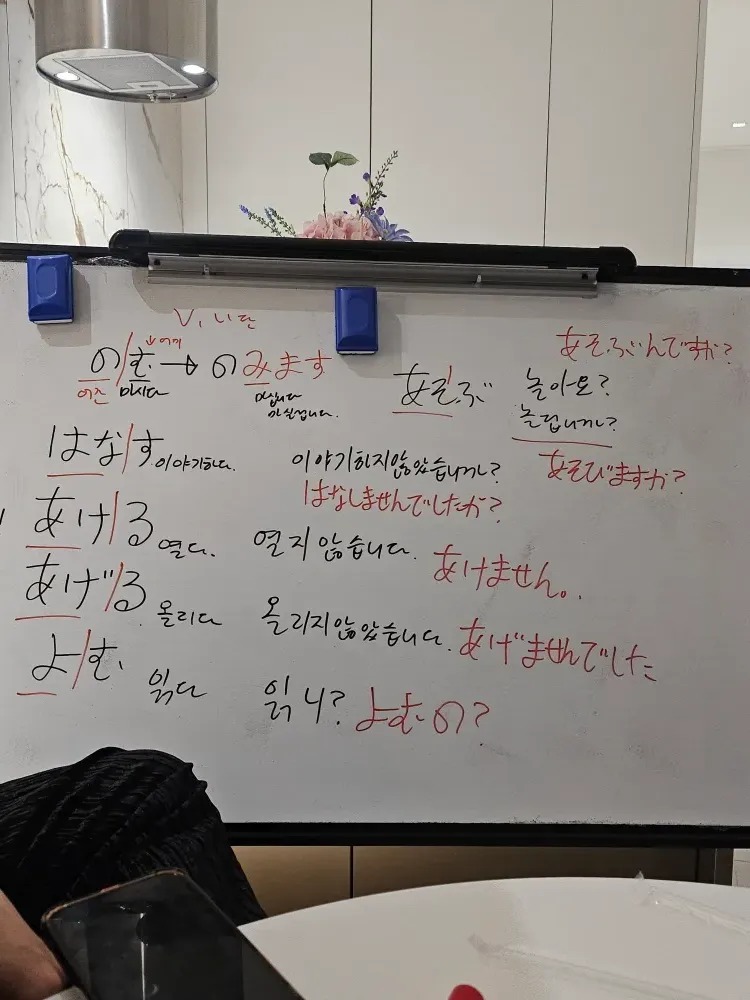 V, い단
の/む → のみます
↓어미
어간 마시다
마십니다
마실겁니다.
はな/す 이야기하다.
이야기하지않았습니까?
はなしませんでしたか?
あけ/る 열다. 열지않습니다. あけません。
あげ/る 올리다 올리지않았습니다. あげませんでした
よ/む 읽다 읽니? よむの?
あそぶんですか?
あそ/ぶ 놀아요?
놉니까?
あそびますか?